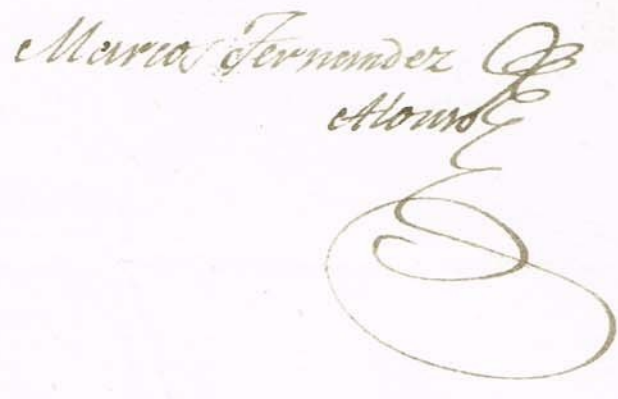 Marcos Fernandez
Alonso